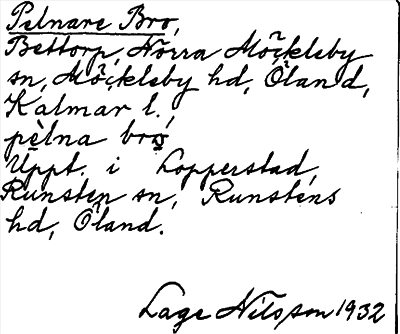 Pelnare Bro,
Bettorp, Norra Möckleby
sn, Möckleby hd, Öland,
Kalmar l.,
pèlna bro
Uppt. i Lopperstad,
Runsten sn, Runstens
hd, Öland.
Lage Nilsson 1932